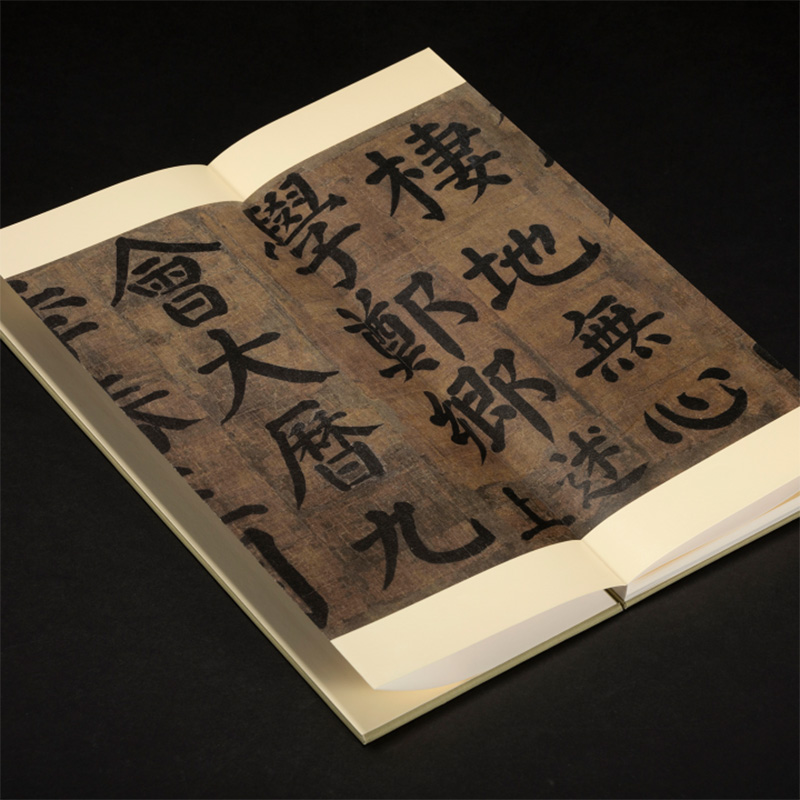 棲地無心
學鄭鄉
述
上
會大曆九